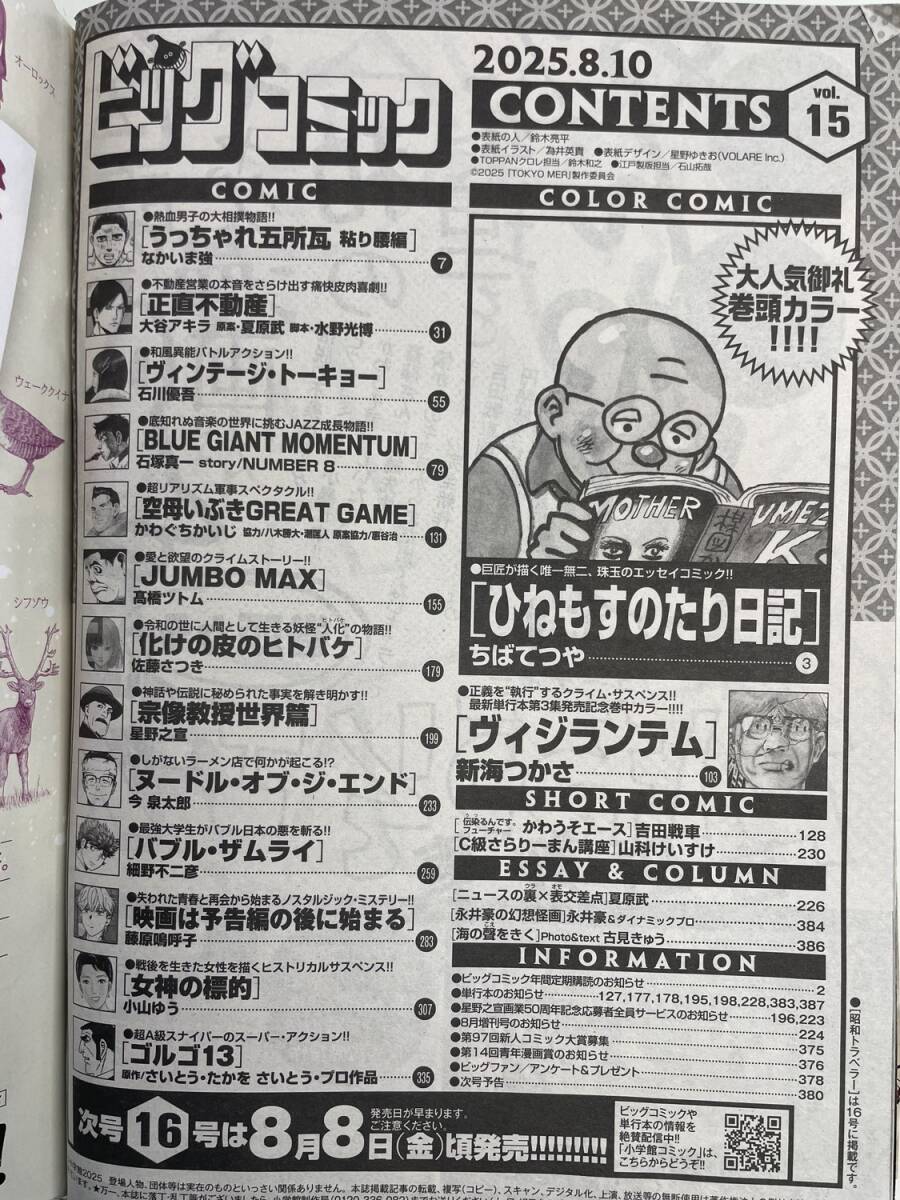 オーロックス
ウェーククイナ
シフゾウ
ビッグコミック
2025.8.10
CONTENTS
vol.
15
●表紙の人／鈴木亮平
●表紙イラスト／為井英貴 ●表紙デザイン／星野ゆきお(VOLARE Inc.)
●TOPPANクロレ担当／鈴木和之 ●江戸製版担当／石山拓哉
©2025「TOKYO MER」製作委員会
COMIC
●熱血男子の大相撲物語!!
[うっちゃれ五所瓦 粘り腰編]
なかいま強 7
●不動産営業の本音をさらけ出す痛快皮肉喜劇!!
[正直不動産]
大谷アキラ 原案・夏原武 脚本・水野光博 31
●和風異能バトルアクション!!
[ヴィンテージ・トーキョー]
石川優吾 55
●底知れぬ音楽の世界に挑むJAZZ成長物語!!
[BLUE GIANT MOMENTUM]
石塚真一 story/NUMBER 8 79
●超リアリズム軍事スペクタクル!!
[空母いぶきGREAT GAME]
かわぐちかいじ 協力/八木勝大・潮匡人 原案協力/惠谷治 131
●愛と欲望のクライムストーリー!!
[JUMBO MAX]
髙橋ツトム 155
●令和の世に人間として生きる妖怪“人化”の物語!!
ヒトバケ
[化けの皮のヒトバケ]
佐藤さつき 179
●神話や伝説に秘められた事実を解き明かす!!
[宗像教授世界篇]
星野之宣 199
●しがないラーメン店で何かが起こる!?
[ヌードル・オブ・ジ・エンド]
今 泉太郎 233
●最強大学生がバブル日本の悪を斬る!!
[バブル・ザムライ]
細野不二彦 259
●失われた青春と再会から始まるノスタルジック・ミステリー!!
[映画は予告編の後に始まる]
藤原鳴呼子 283
●戦後を生きた女性を描くヒストリカルサスペンス!!
[女神の標的]
小山ゆう 307
●超A級スナイパーのスーパー・アクション!!
[ゴルゴ13]
原作/さいとう・たかを さいとう・プロ作品 335
COLOR COMIC
大人気御礼
巻頭カラー
!!!!
MOTHER
UMEZ
楳図
K
●巨匠が描く唯一無二、珠玉のエッセイコミック!!
[ひねもすのたり日記]
ちばてつや 3
●正義を“執行”するクライム・サスペンス!!
最新単行本第3集発売記念巻中カラー!!!!
[ヴィジランテム]
新海つかさ 103
SHORT COMIC
[伝染るんです。フューチャー かわうそエース]吉田戦車 128
[C級さらりーまん講座]山科けいすけ 230
ESSAY & COLUMN
[ニュースの裏×表交差点]夏原武 226
[永井豪の幻想怪画]永井豪&ダイナミックプロ 384
[海の聲をきく]Photo&text 古見きゅう 386
INFORMATION
●ビッグコミック年間定期購読のお知らせ 2
●単行本のお知らせ 127,177,178,195,198,228,383,387
●星野之宣画業50周年記念応募者全員サービスのお知らせ 196,223
●8月増刊号のお知らせ 224
●第97回新人コミック大賞募集 375
●第14回青年漫画賞のお知らせ 376
●ビッグファン／アンケート&プレゼント 378
●次号予告 380
●[昭和トラベラー]は16号に掲載です。
次号16号は8月8日(金)頃発売!!!!!!!!!
発売日が早まります。
ご注意ください。
ビッグコミックや
単行本の情報を
絶賛配信中!!
「小学館コミック」は、
こちらからどうぞ!!
2025 登場人物、団体等は実在のものといっさい関係ありません。本誌掲載記事の転載、複写(コピー)、スキャン、デジタル化、上演、放送等の無断使用は